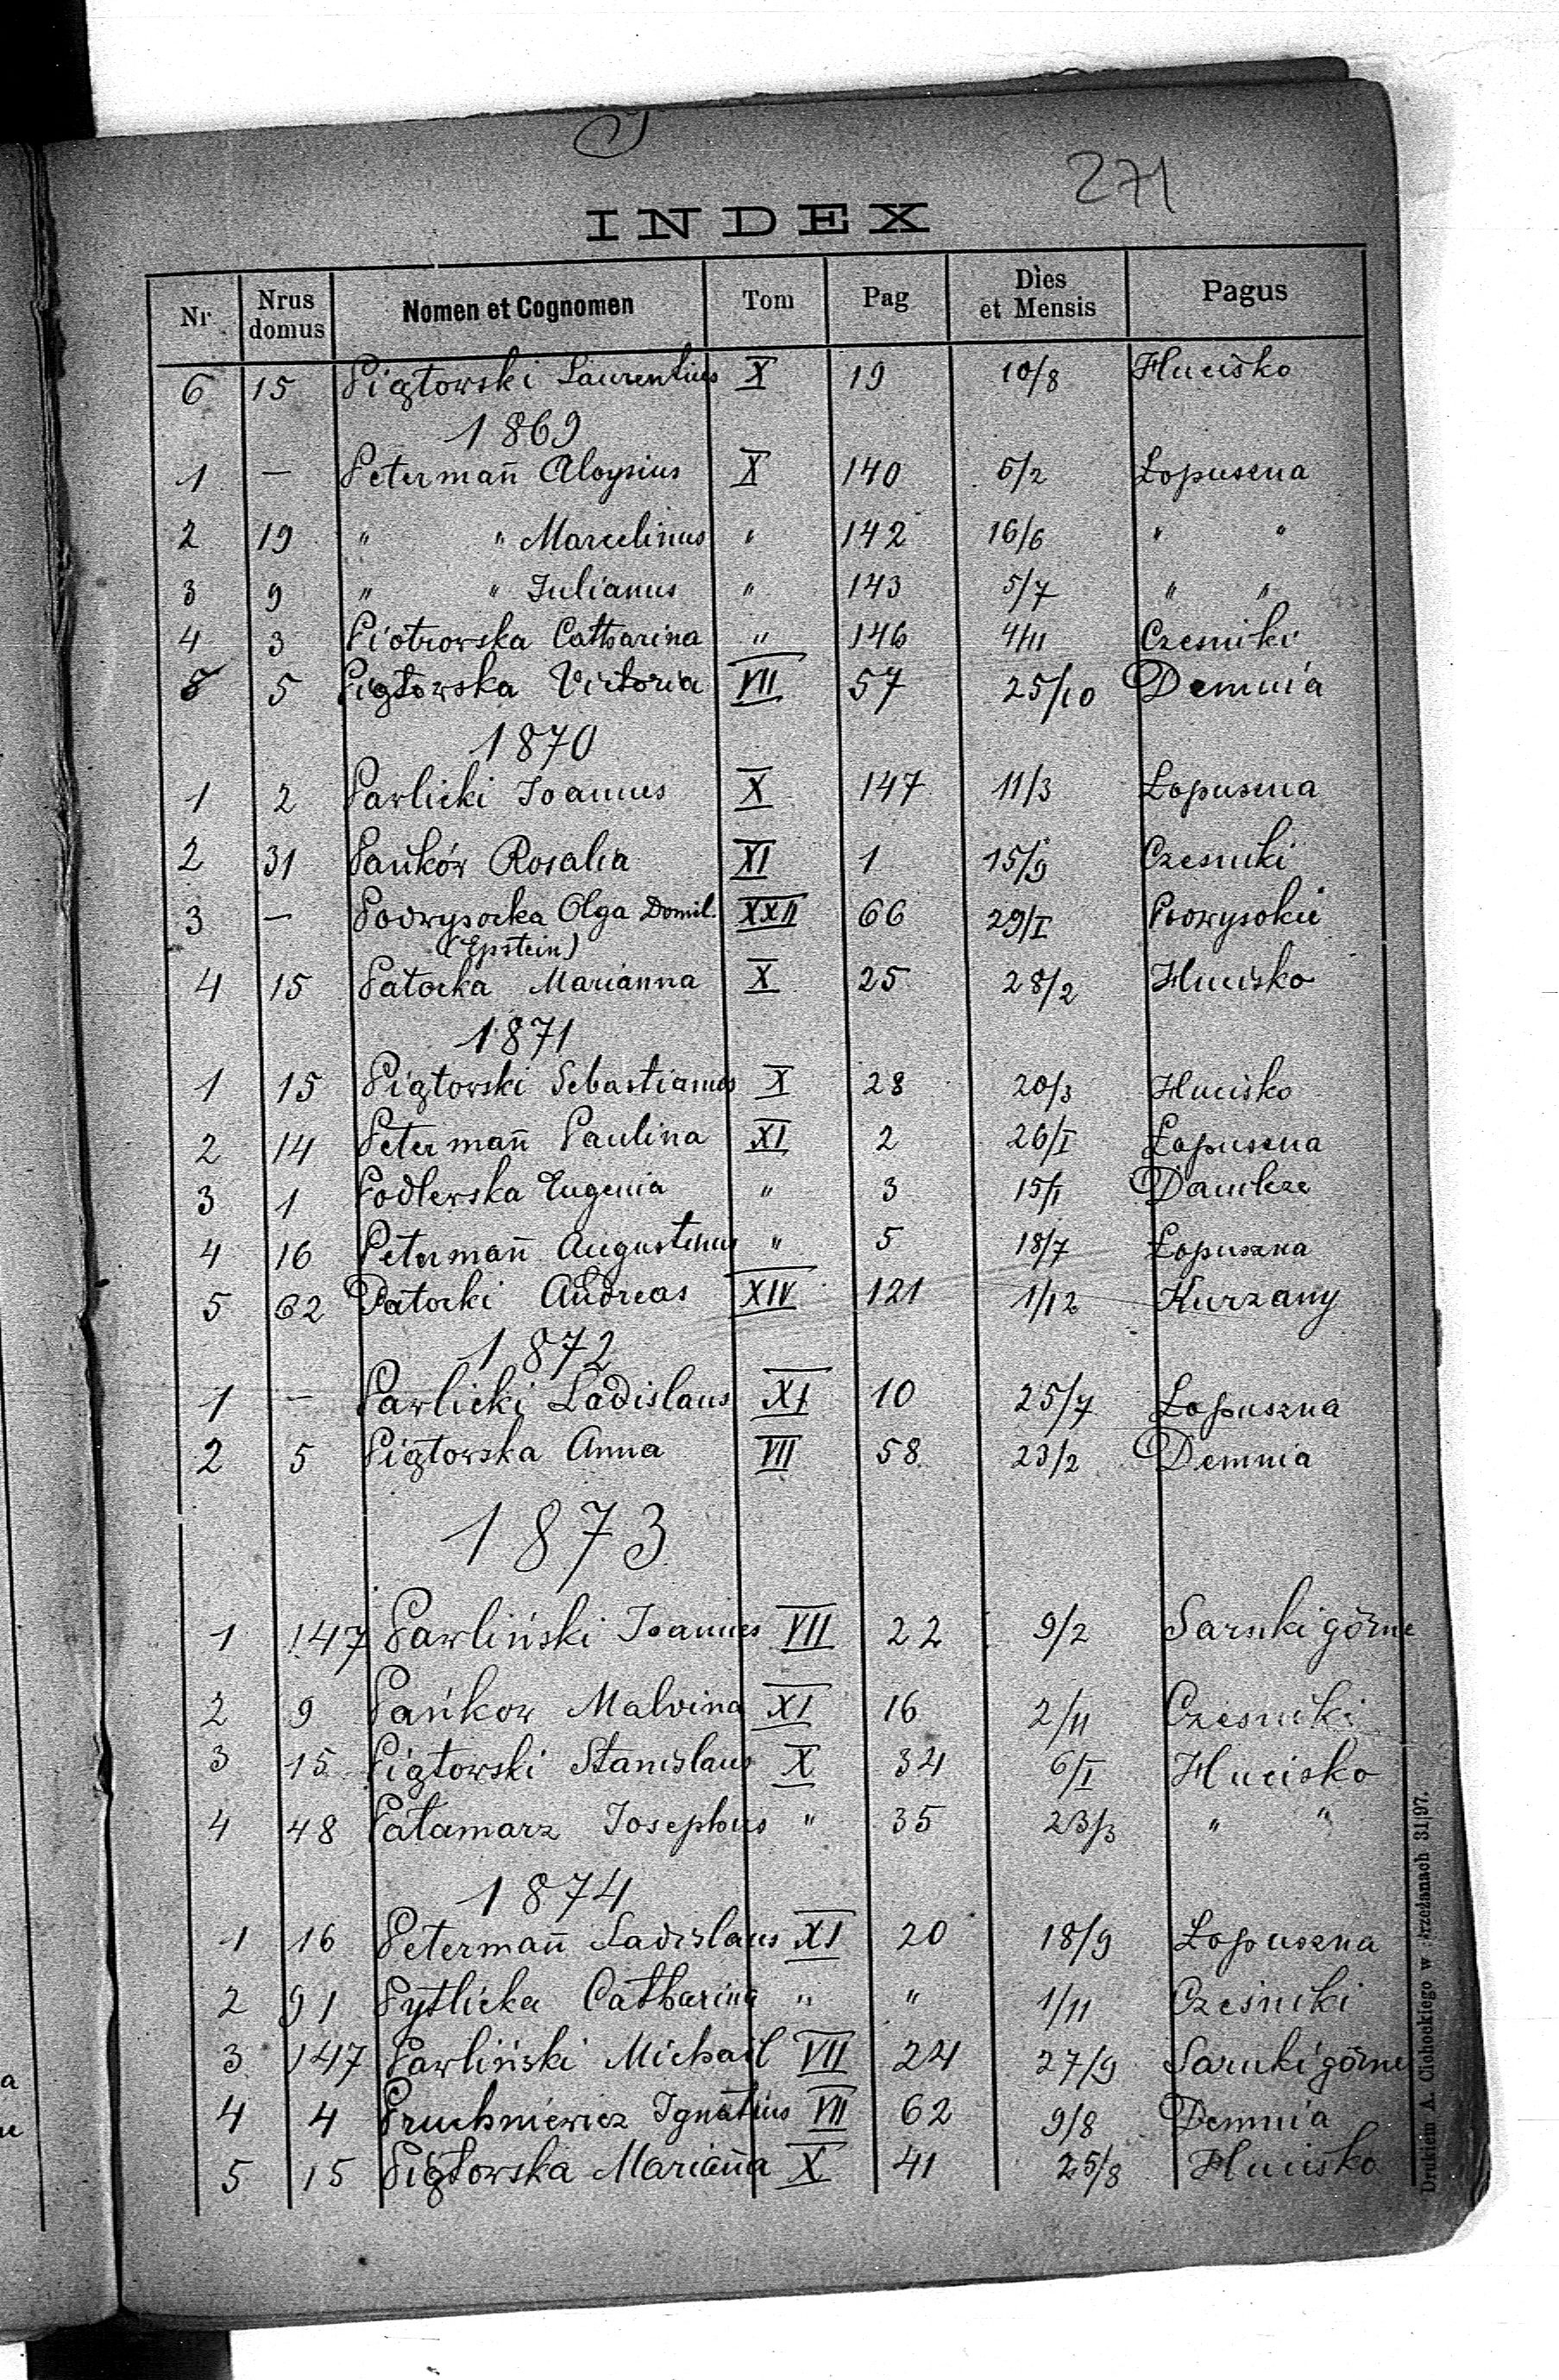 P
271
INDEX
Nr Nrus domus Nomen et Cognomen Tom Pag Dies et Mensis Pagus
6 15 Piątowski Laurentius X 19 10/8 Hucisko
1869
1 — Petermañ Aloysius X 140 5/2 Łopuszna
2 19 " " Marcelinus " 142 16/6 " "
3 9 " " Julianus " 143 5/7 " "
4 3 Piotrowska Catharina " 146 4/11 Czesniki
5 5 Piątowska Victoria VII 57 25/10 Demnia
1870
1 2 Pawlicki Joannes X 147 11/3 Łopuszna
2 31 Pańków Rosalia XI 1 15/9 Czesniki
3 — Podwysocka Olga Domil. XXII 66 29/I Podwysokie
(Epstein)
4 15 Patocka Marianna X 25 28/2 Hucisko
1871
1 15 Piątowski Sebastianus X 28 20/3 Hucisko
2 14 Petermañ Paulina XI 2 26/I Łopuszna
3 1 Podlewska Eugenia " 3 15/I Daulcze
4 16 Petermañ Augustinus " 5 18/7 Łopuszna
5 62 Patocki Andreas XIV 121 1/12 Kurzany
1872
1 — Pawlicki Ladislaus XI 10 25/7 Łopuszna
2 5 Piątowska Anna VII 58 23/2 Demnia
1873
1 147 Pawliński Joannes VII 22 9/2 Sarnki górne
2 9 Pańkow Malvina XI 16 2/11 Czesniki
3 15 Piątowski Stanislaus X 34 6/I Hucisko
4 48 Patamarz Josephus " 35 23/3 " "
1874
1 16 Petermañ Ladislaus XI 20 18/9 Łopuszna
2 91 Pytlicka Catharina " " 1/11 Cześniki
3 147 Pawliński Michail VII 24 27/9 Sarnki górne
4 4 Pruchniewicz Ignatius VII 62 9/8 Demnia
5 15 Piątowska Mariaña X 41 25/8 Hucisko
Drukiem A. Cichockiego w Brzeżanach 31|97.
a